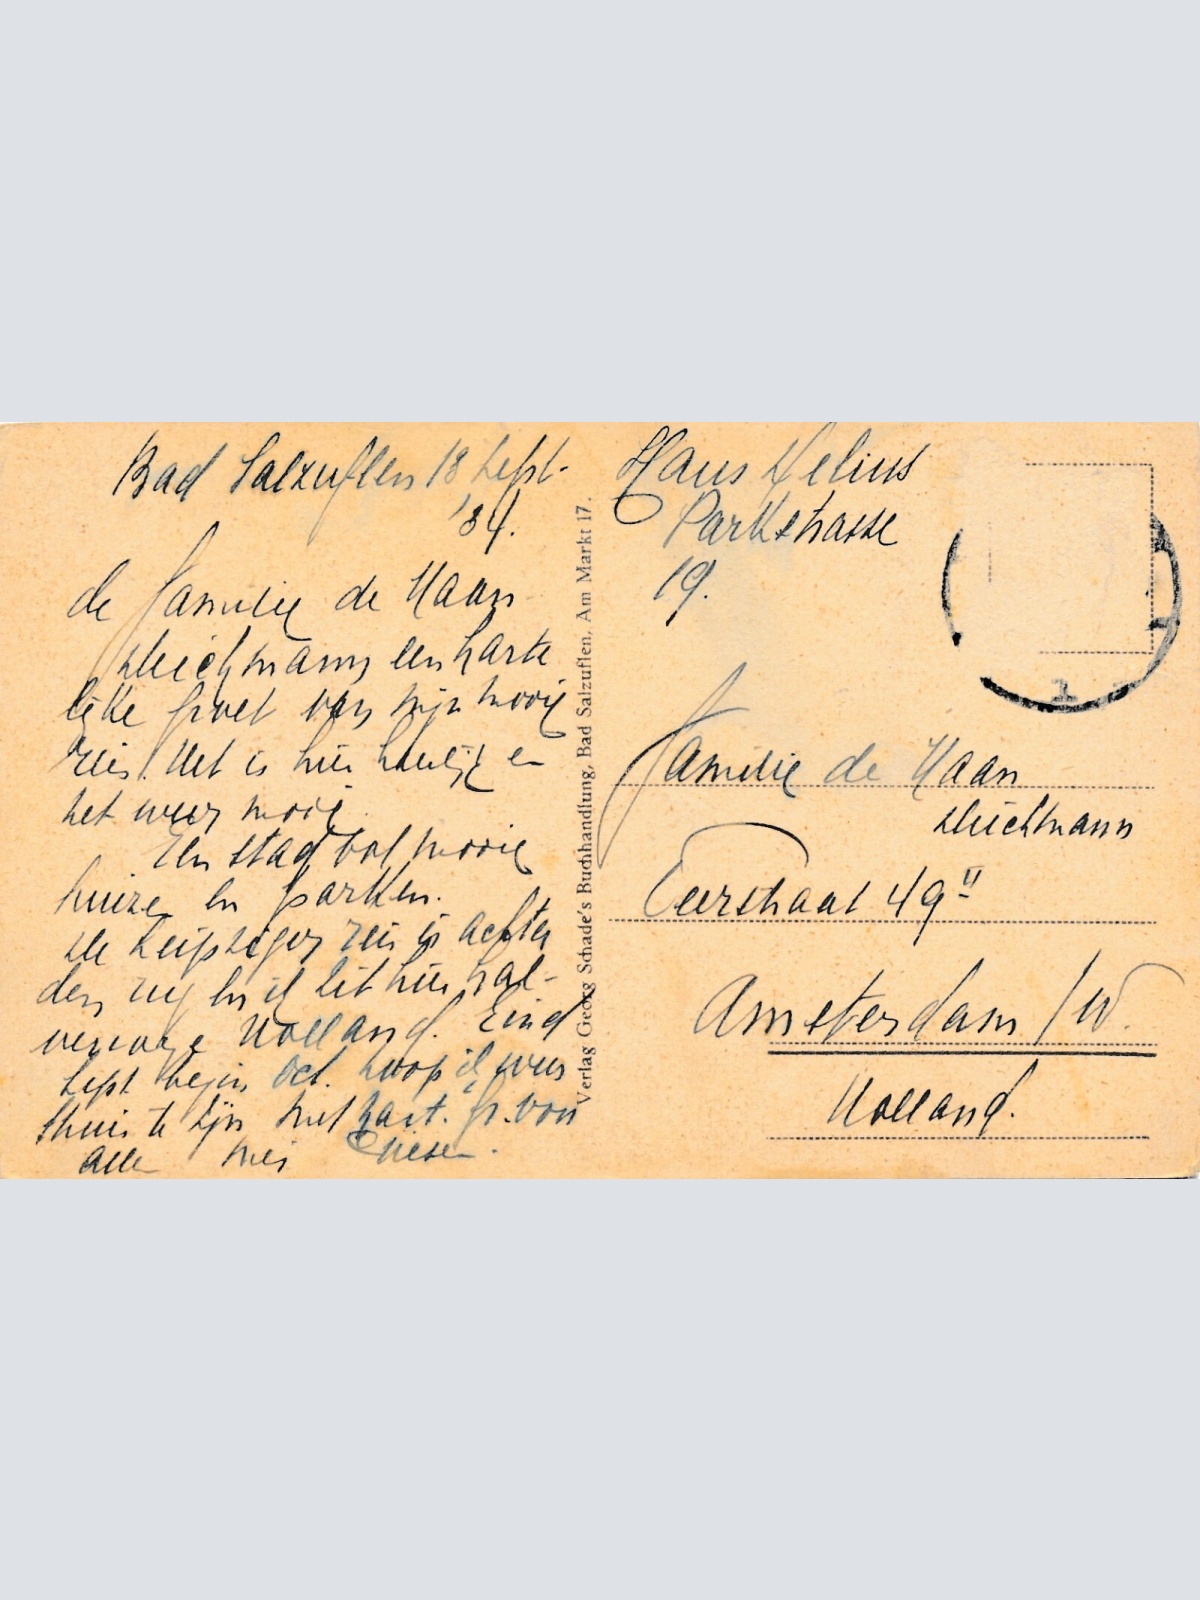 Bad Salzuflen 18 Sept.
'34.
de familie de Haan
een harte
lijke groet van mijn mooie
reis. Het is hier heerlijk en
het weer mooi.
Een stad vol mooie
huize en parken.
De Leipziger reis is achter
den rug en ik zit hier hal-
verwege Holland. Eind
Sept begin Oct. hoop ik weer
thuis te zijn met hart. gr. von
allen
Haus Delius
Parkstrasse
19.
Familie de Haan
Eerstraat 49 II
Amsterdam / W.
Holland.
Verlag Georg Schade's Buchhandlung, Bad Salzuflen, Am Markt 17.